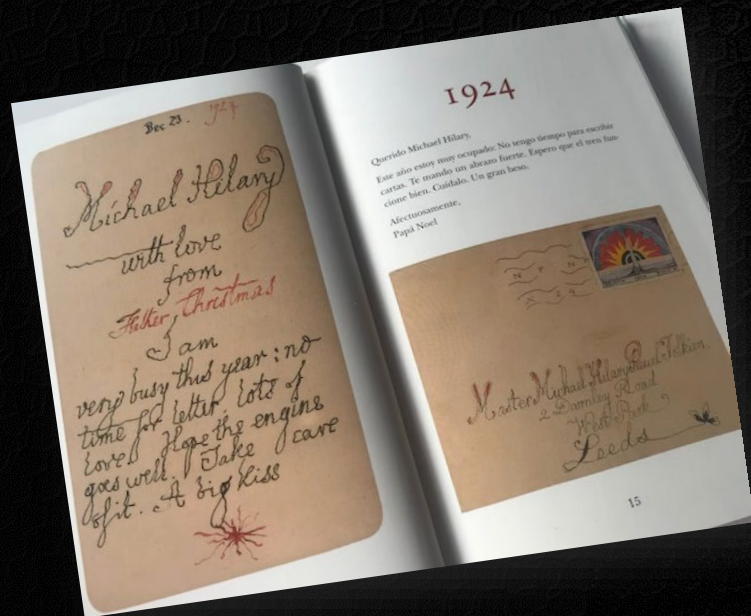 Dec 23. 1924
Michael Hilary
with love
from
Father Christmas
I am
very busy this year: no
time for letter. Lots of
love. Hope the engine
goes well. Take care
of it. A big kiss
1924
Querido Michael Hilary,
Este año estoy muy ocupado: No tengo tiempo para escribir
cartas. Te mando un abrazo fuerte. Espero que el tren fun-
cione bien. Cuídalo. Un gran beso.
Afectuosamente,
Papá Noel
Master Michael Hilary Reuel Tolkien
2 Darnley Road
West Park
Leeds
15